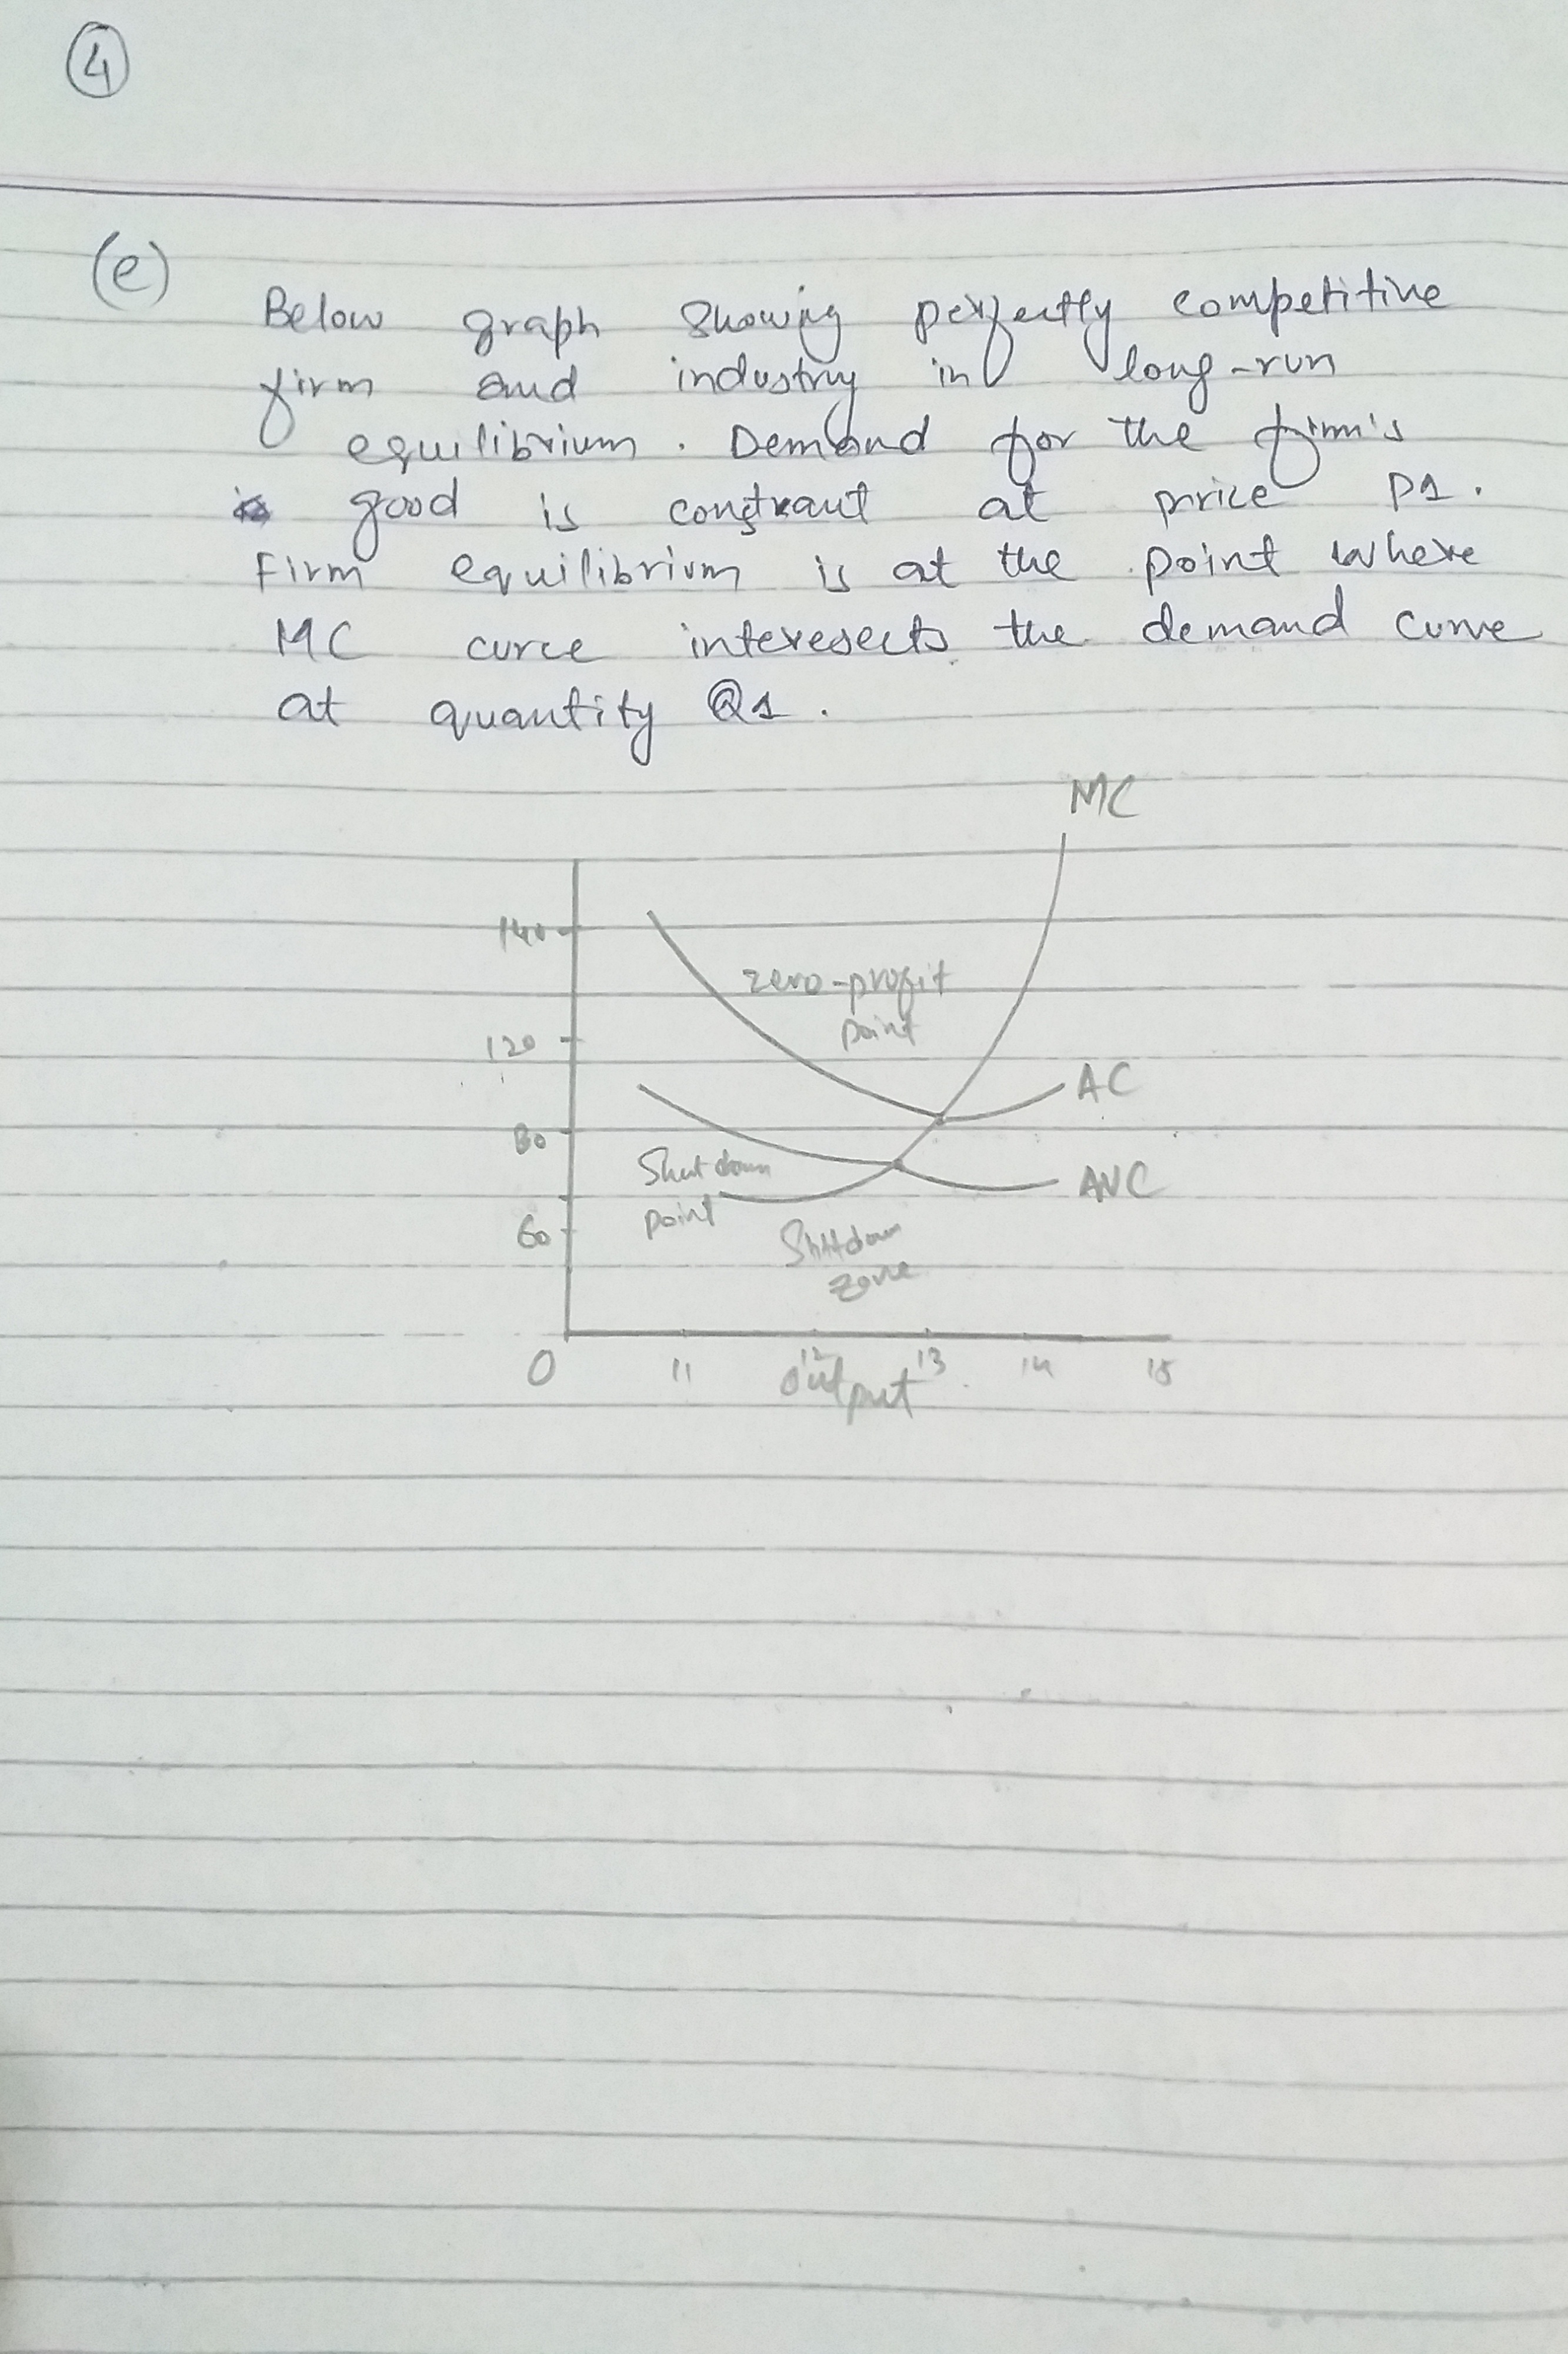 4
(e)
Below graph showing perfectly competitive
firm and industry in long-run
equilibrium. Demand for the firm's
good is constraut at price P1.
Firm equilibrium is at the point where
MC curce interesects the demand curve
at quantity Q1.
MC
140
zero-profit
point
120
AC
80
Shut down
point
AVC
60
Shttdown
zone
0 11 12 13 14 15
output